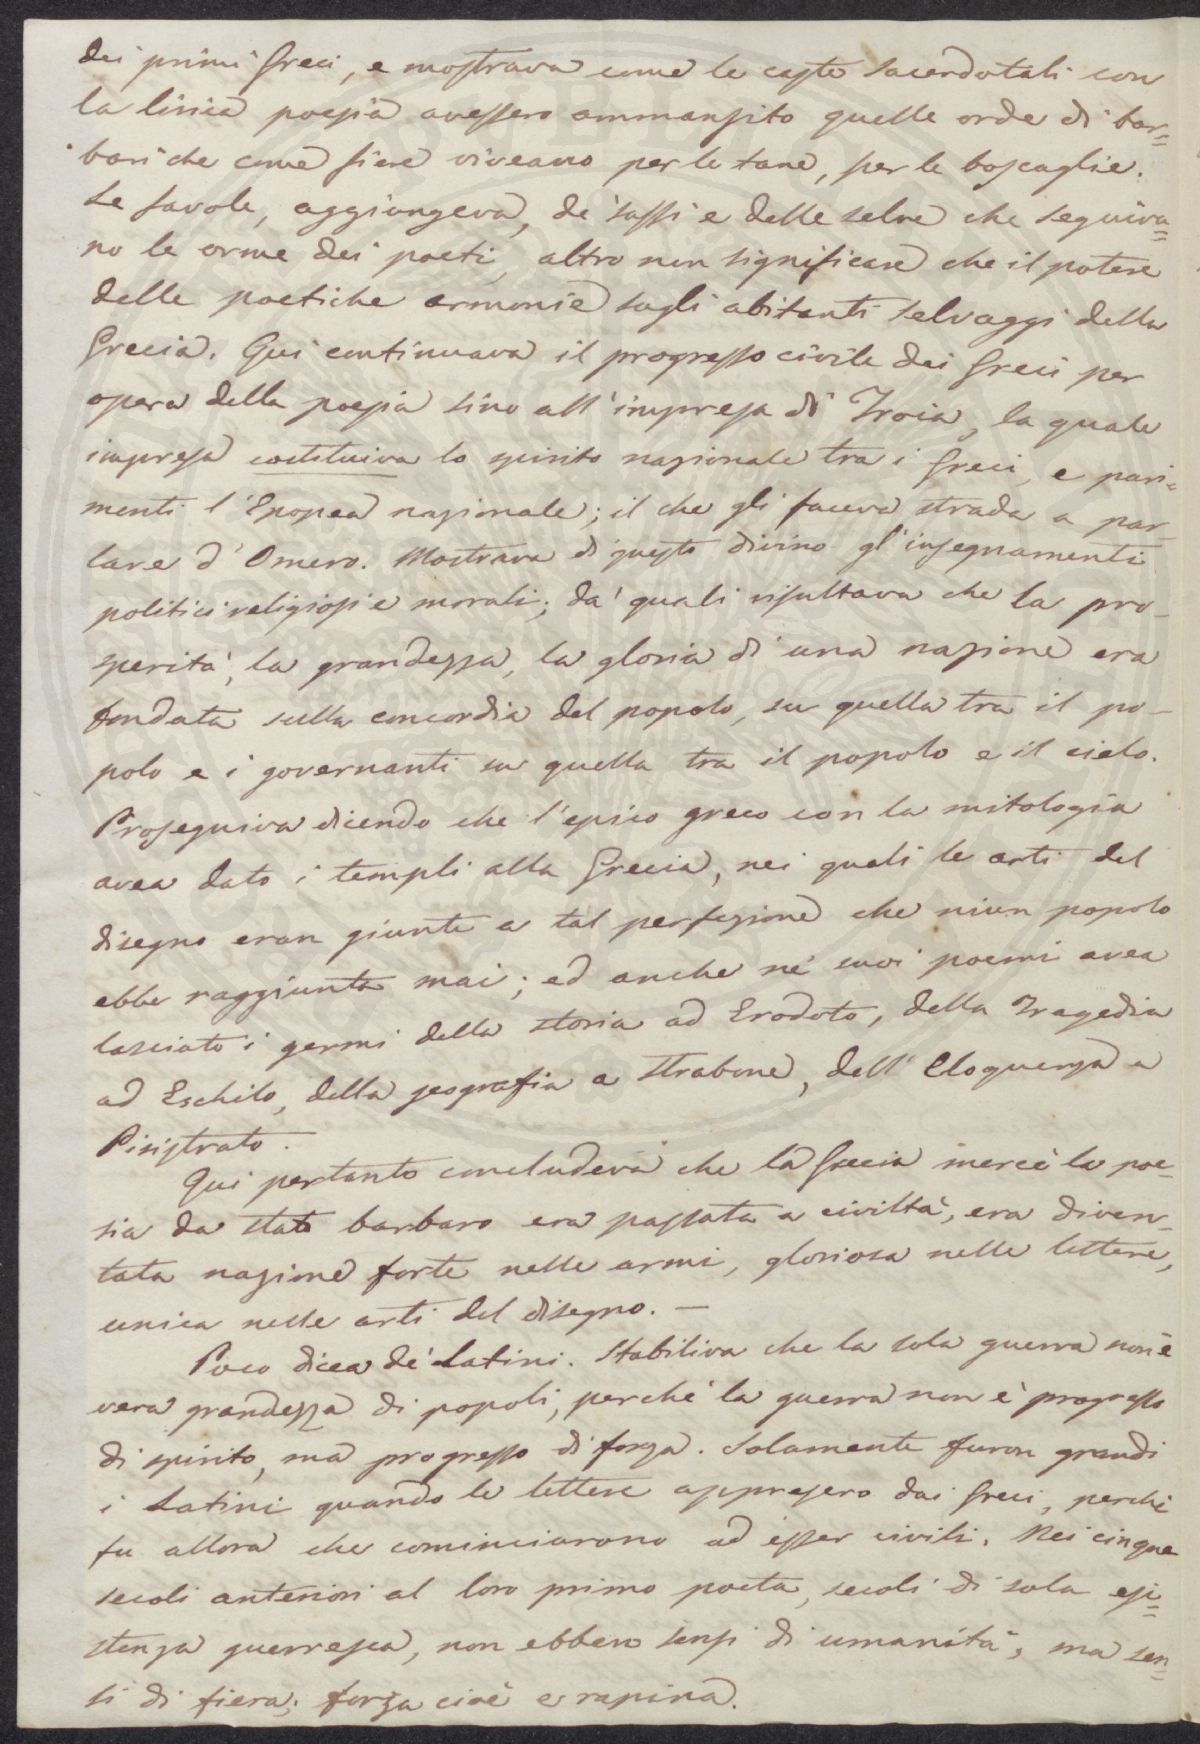 dei primi Greci, e mostrava come le caste sacerdotali con
la lirica poesia avessero ammansito quelle orde di bar=
bari che come fiere viveano per le tane, per le boscaglie.
Le favole, aggiungeva, de' sassi e delle selve che seguiva=
no le orme dei poeti, altro non significare che il potere
delle poetiche armonie sugli abitanti selvaggi della
Grecia. Qui continuava il progresso civile dei Greci per
opera della poesia sino all'impresa di Troia, la quale
impresa costituiva lo spirito nazionale tra i Greci, e pari=
menti l'Epopea nazionale; il che gli faceva strada a par=
lare d'Omero. Mostrava di questo divino gl'insegnamenti
politici religiosi e morali; da' quali risultava che la pro-
sperità, la grandezza, la gloria di una nazione era
fondata sulla concordia del popolo, su quella tra il po-
polo e i governanti su quella tra il popolo e il cielo.
Proseguiva dicendo che l'epico greco con la mitologia
avea dato i templi alla Grecia, nei quali le arti del
disegno eran giunte a tal perfezione che niun popolo
ebbe raggiunta mai; ed anche ne' suoi poemi avea
lasciato i germi della storia ad Erodoto, della Tragedia
ad Eschilo, della geografia a Strabone, dell'Eloquenza a
Pisistrato.
Qui pertanto concludeva che la Grecia mercè la poe=
sia da stato barbaro era passata a civiltà, era diven=
tata nazione forte nelle armi, gloriosa nelle lettere,
unica nelle arti del disegno. —
Poco dicea de' Latini. Stabiliva che la sola guerra non è
vera grandezza di popoli, perchè la guerra non è progresso
di spirito, ma progresso di forza. Solamente furon grandi
i Latini quando le lettere appresero dai Greci, perchè
fu allora che cominciarono ad esser civili. Nei cinque
secoli anteriori al loro primo poeta, secoli di sola esi=
stenza guerresca, non ebbero sensi di umanità, ma sen=
si di fiera; forza cioè e rapina.